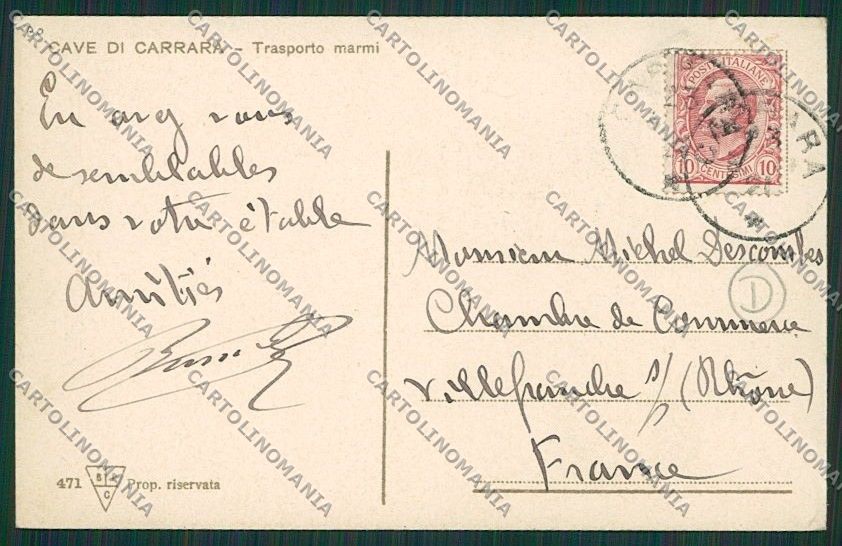 CAVE DI CARRARA - Trasporto marmi
POSTE ITALIANE
10 CENTESIMI 10
En avez vous
de semblables
dans votre étable
Amitiés
Monsieur Michel Descombes
Chambre de Commerce
Villefranche s/ (Rhône)
France
D
471 Prop. riservata
CARTOLINOMANIA